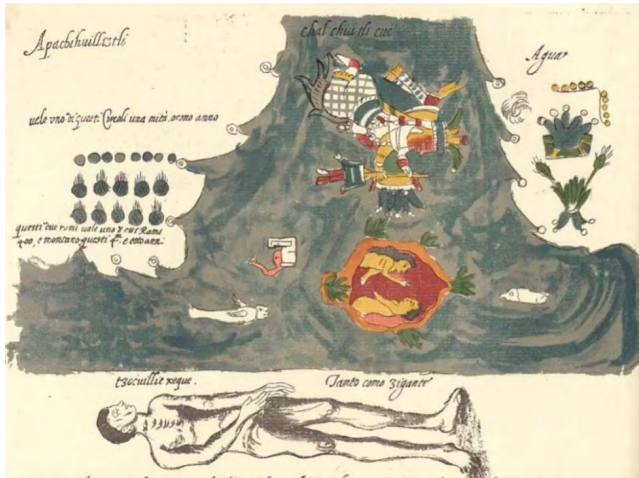 Apachihuiliztli
chal chiutli cue
Agua
uale uno di questi Circoli una mità, o uno anno
questi due rami uale uno
400, e montano questi
tzocuillic xeque.
Tanto como gigante